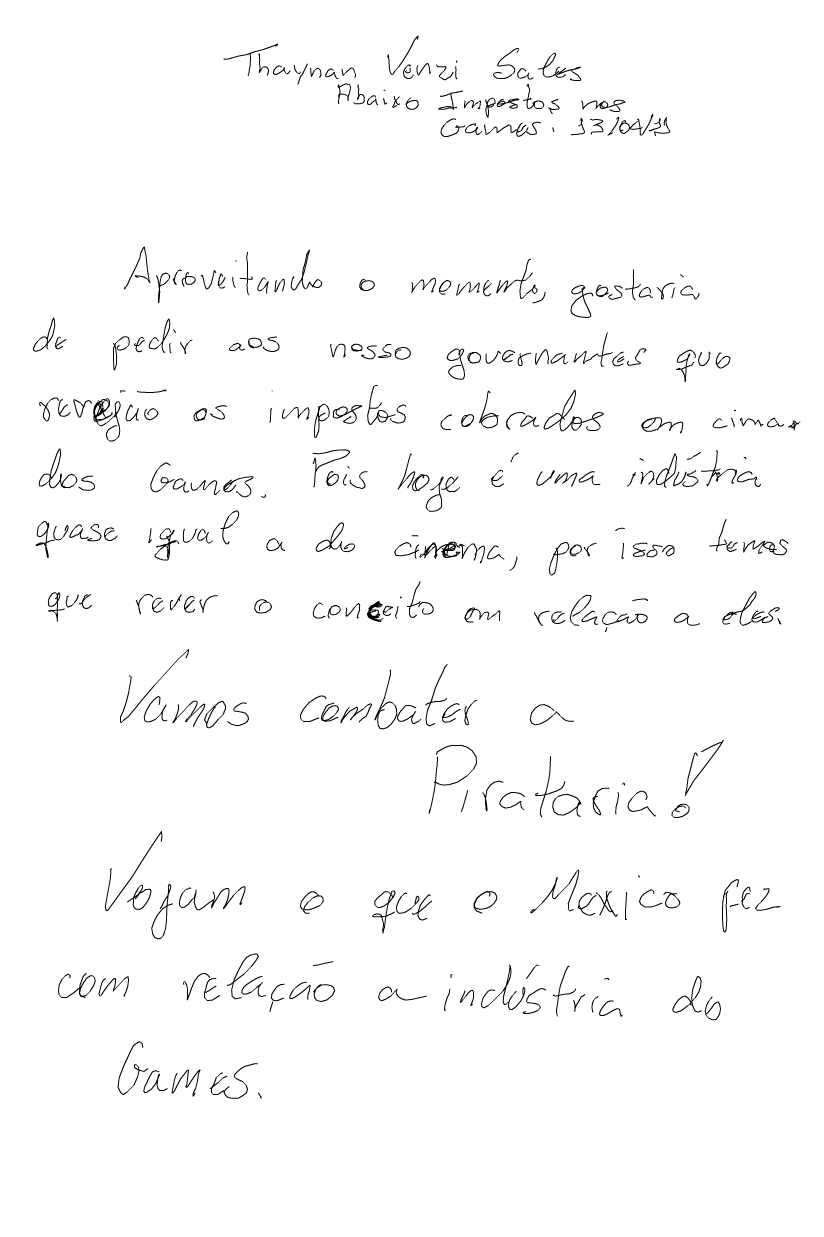 Thaynan Venzi Sales
Abaixo Impostos nos
Games. 13/04/11
Aproveitando o momento, gostaria
de pedir aos nosso governantes que
revejão os impostos cobrados em cima
dos Games. Pois hoje é uma indústria
quase igual a do cinema, por isso temos
que rever o conceito em relação a eles.
Vamos combater a
Pirataria!
Vejam o que o Mexico fez
com relação a indústria do
Games.